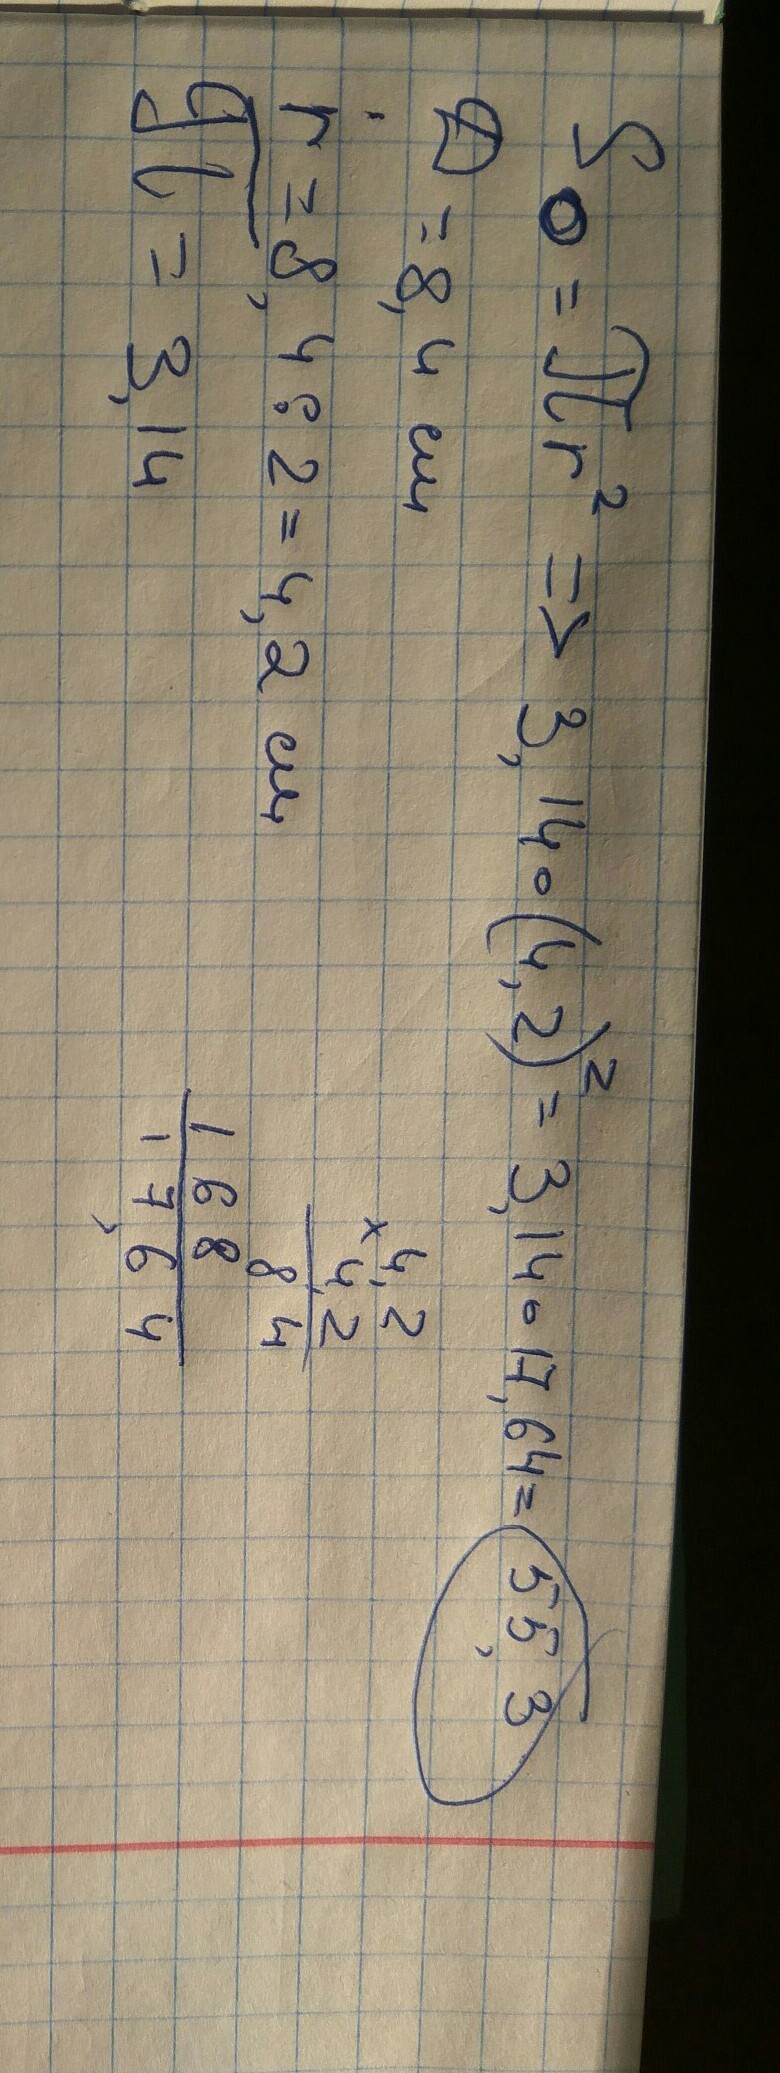 S o = πr² => 3,14∘(4,2)² = 3,14∘17,64 = 55,3
D = 8,4 см
r = 8,4 : 2 = 4,2 см
π = 3,14
× 4,2
4,2
84
168
17,64